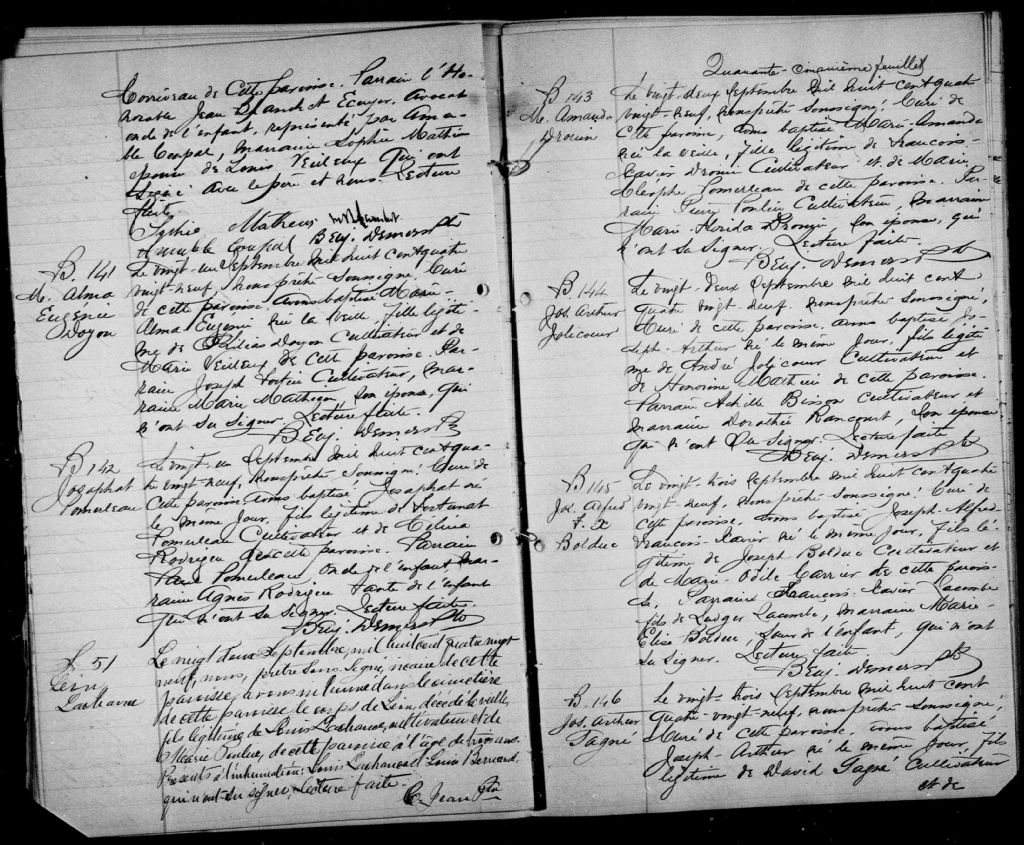 de cette paroisse. Parrain l'Ho-
norable Jean Blanchet Ecuyer, Avocat
oncle de l'enfant, représenté par Ama-
ble Coupal, marraine Sophie Mathieu
épouse de Louis Veilleux qui ont
signé avec le père et nous. Lecture
faite.
Sophie Mathieu
Amable Coupal Benj. Demers Ptre
B. 141
M. Alma
Eugénie
Doyon
Le vingt-un Septembre mil huit cent quatre
vingt-neuf, nous prêtre soussigné, Curé
de cette paroisse avons baptisé Marie-
Alma Eugénie née la veille, fille légiti-
me de Doyon Cultivateur et de
Marie Veilleux de cette paroisse. Par-
rain Joseph Cultivateur, mar-
raine Marie Mathieu, son épouse, qui
n'ont su signer. Lecture faite.
Benj. Demers Ptre
B 142
Josaphat
Pomerleau
Le vingt-un Septembre mil huit cent qua-
tre vingt-neuf, nous prêtre soussigné, Curé de
cette paroisse avons baptisé Josaphat né
le même jour, fils légitime de Fortunat
Pomerleau Cultivateur et de Célina
Rodrigue de cette paroisse. Parrain
Pomerleau, oncle de l'enfant, mar-
raine Agnès Rodrigue tante de l'enfant
qui n'ont su signer. Lecture faite.
Benj. Demers Ptre
S. 51
Lachance
Le vingt deux Septembre, mil huit cent quatre vingt
neuf, nous, prêtre soussigné, vicaire de cette
paroisse, avons inhumé dans le cimetière
de cette paroisse le corps de décédé la veille,
fils légitime de Louis Lachance, cultivateur et de
Marie Poulin, de cette paroisse à l'âge de trois ans.
Présents à l'inhumation: Louis Lachance et Louis Bernard,
qui n'ont su signer, Lecture faite.
Jean Ptre
Quarante-cinquième feuillet
B 143
M. Amanda
Drouin
Le vingt deux Septembre mil huit cent quatre
vingt-neuf, nous prêtre soussigné, Curé de
cette paroisse, avons baptisé Marie-Amanda
née la veille, fille légitime de François-
Xavier Drouin Cultivateur et de Marie
Cléophe Pomerleau de cette paroisse. Par-
rain Pierre Poulin Cultivateur, marraine
Marie Florida Drouin, son épouse, qui
n'ont su signer. Lecture faite.
Benj. Demers Ptre
B 144
Jos. Arthur
Jolicoeur
Le vingt-deux Septembre mil huit cent
quatre vingt neuf, nous prêtre soussigné,
Curé de cette paroisse, avons baptisé Jo-
seph-Arthur né le même jour, fils légiti-
me de André Jolicoeur Cultivateur et
de Honorine Mathieu de cette paroisse.
Parrain Achille Bisson Cultivateur et
marraine Dorothée Rancourt, son épouse
qui n'ont su signer. Lecture faite.
Benj. Demers Ptre
B 145
Jos. Alfred
F. X
Bolduc
Le vingt-trois Septembre mil huit cent quatre
vingt-neuf, nous prêtre soussigné, Curé de
cette paroisse, avons baptisé Joseph-Alfred-
François-Xavier né le même jour, fils lé-
gitime de Joseph Bolduc Cultivateur et
de Marie Odile Carrier de cette parois-
se. Parrain François-Xavier Lacombe
fils de Ludger Lacombe, marraine Marie-
Elise Bolduc, soeur de l'enfant, qui n'ont
su signer. Lecture faite.
Benj. Demers Ptre
B. 146
Jos. Arthur
Gagné
Le vingt-trois Septembre mil huit cent
quatre-vingt-neuf, nous prêtre soussigné,
Curé de cette paroisse, avons baptisé
Joseph-Arthur né le même jour, fils
légitime de David Gagné Cultivateur
et de